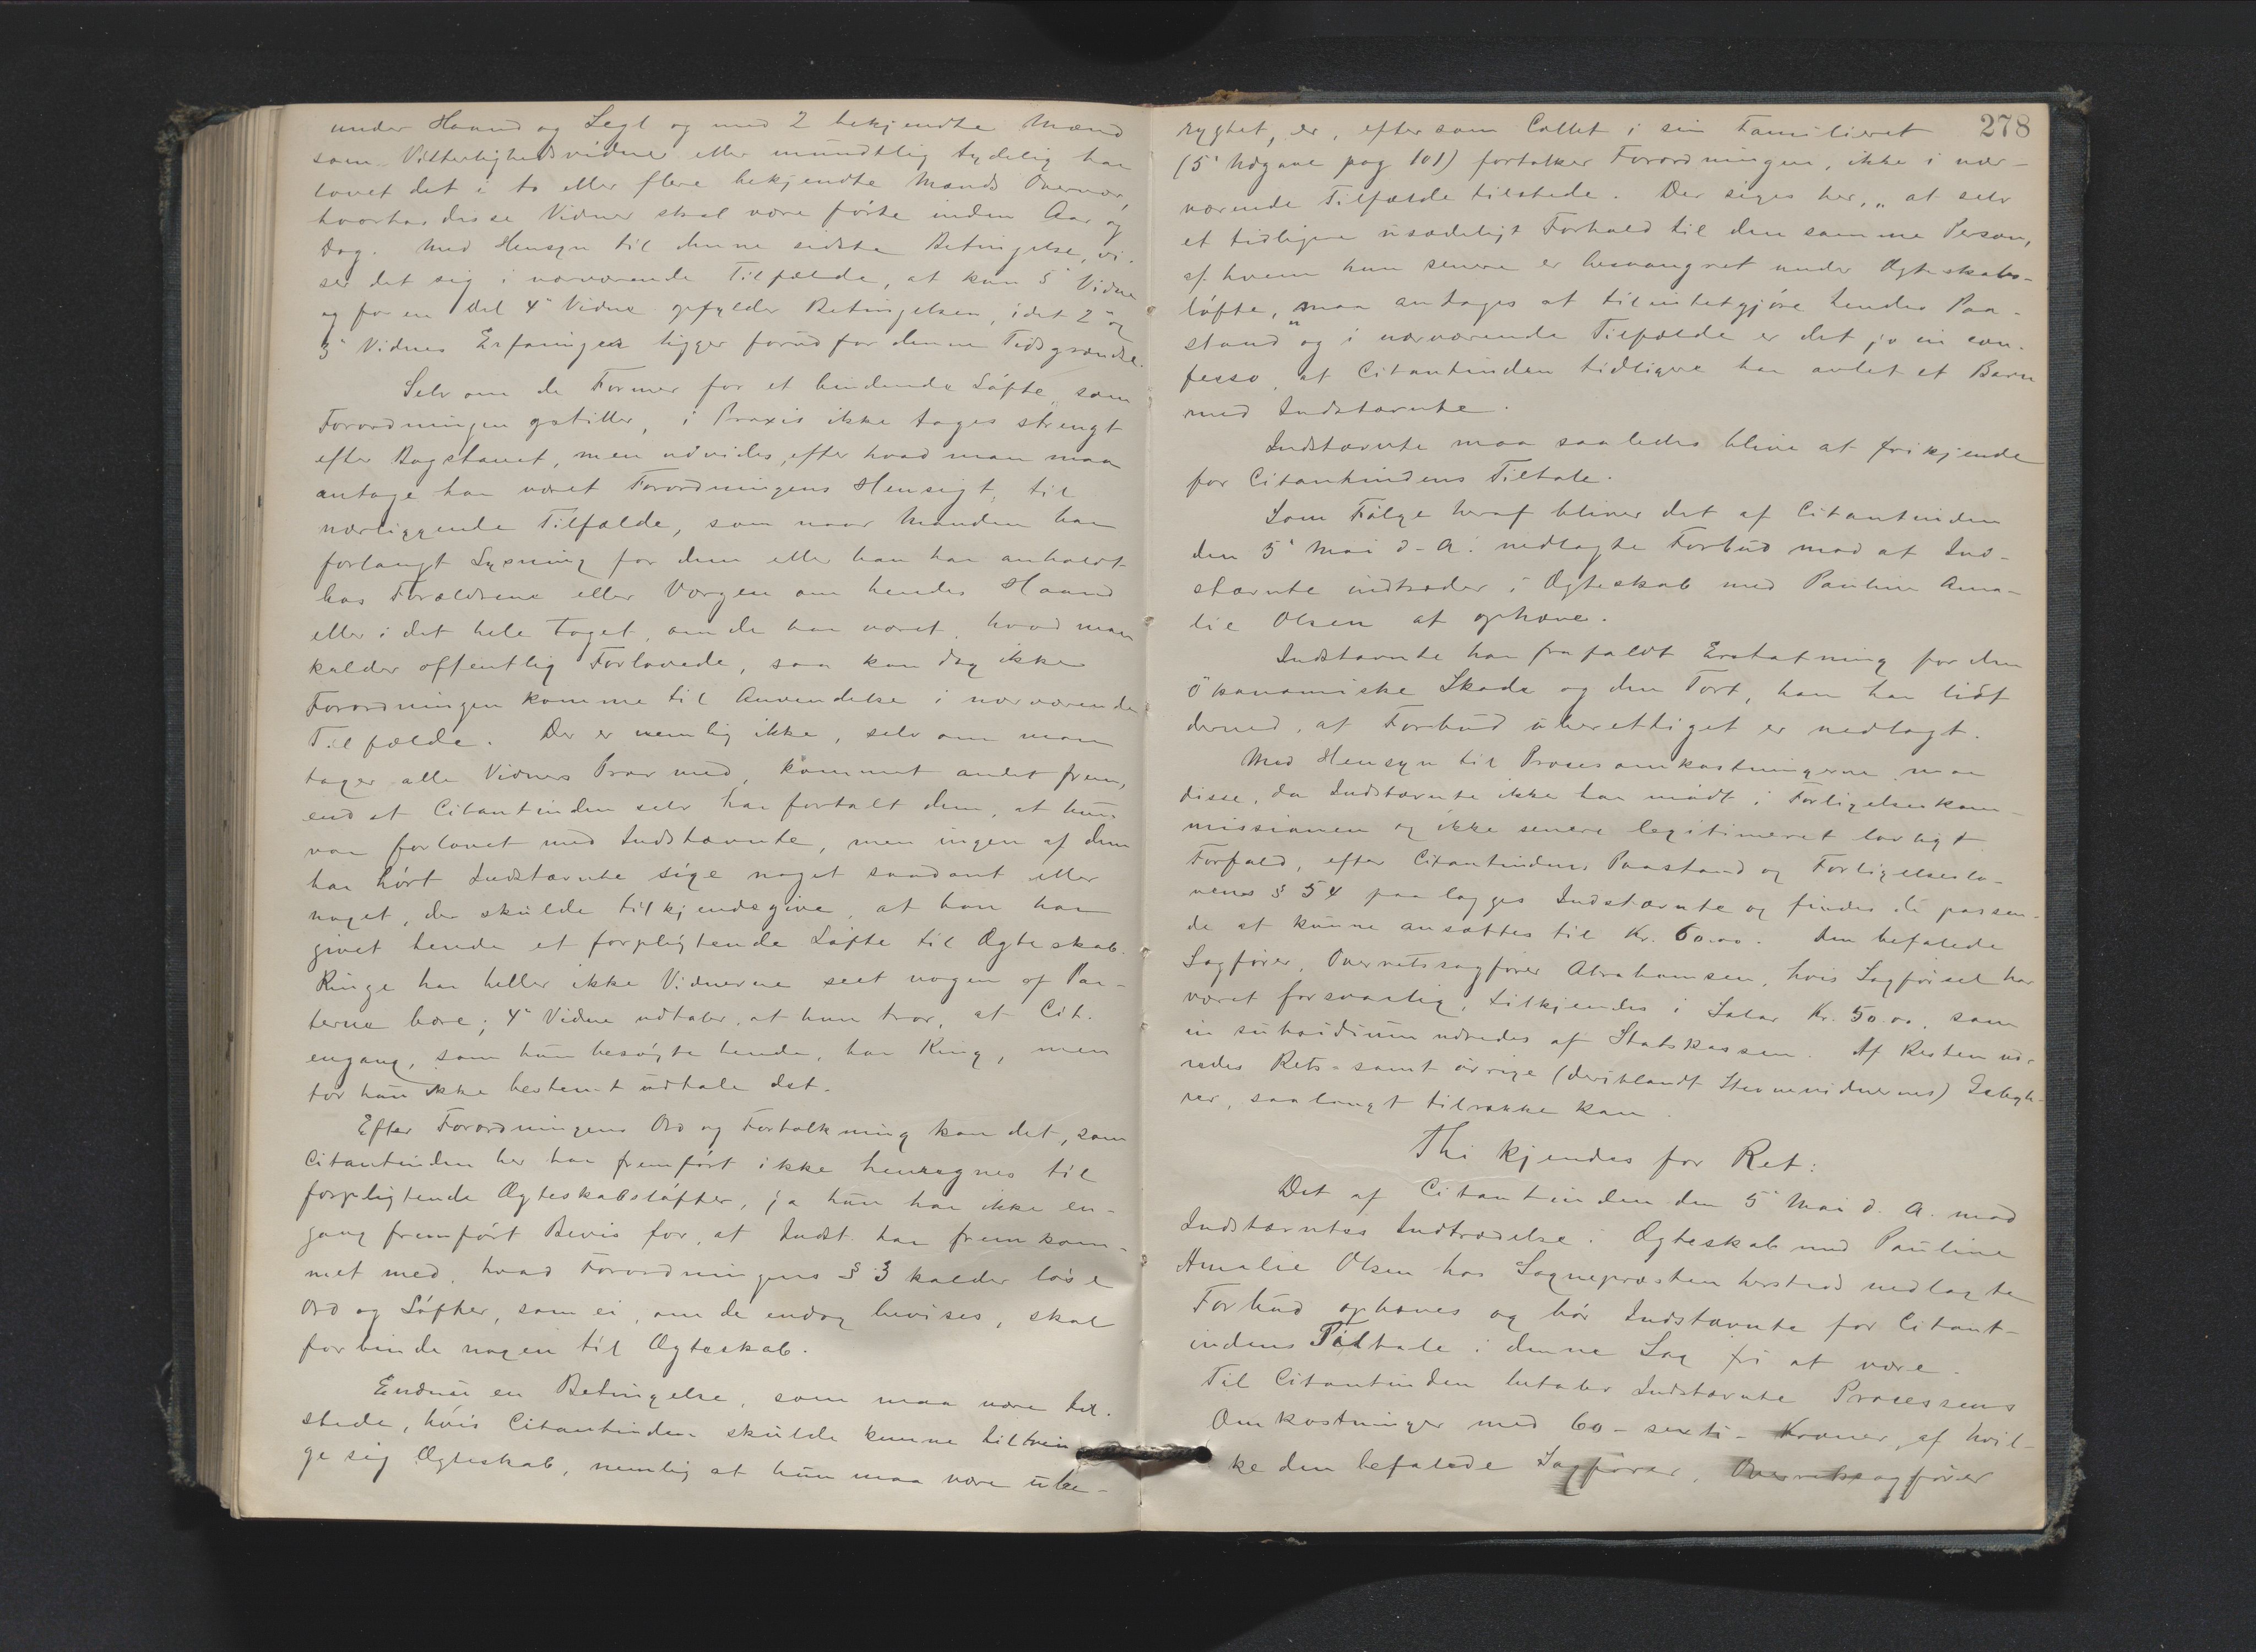 under Haand og Segl og med 2 bekjendte Mænd
som Vitterlighedsvidner eller mundtlig tydelig har
lovet det i to eller flere bekjendte Mænds Overvær,
hvorhos disse Vidner skal være førte inden Aar og
Dag. Med Hensyn til denne sidste Betingelse, vi-
ser det sig i nærværende Tilfælde, at kun 5' Vidne
og for en Del 4' Vidne opfylder Betingelsen, idet 2' og
3' Vidnes Erfaringer ligger forud for denne Tidsgrændse.
Selv om de Former for et bindende Løfte, som
Forordningen opstiller, i Praxis ikke tages strengt
efter Bogstavet, men udvides, efter hvad man maa
antage har været Forordningens Hensigt, til
nærliggende Tilfælde, som naar Manden har
forlangt Lysning for dem eller han har anholdt
hos Forældrene eller Værgen om hendes Haand
eller i det hele taget, om de har været, hvad man
kalder offentlig Forlovede, saa kan dog ikke
Forordningen komme til Anvendelse i nærværende
Tilfælde. Der er nemlig ikke, selv om man
tager alle Vidners Prov med, kommet andet frem,
end at Citantinden selv har fortalt dem, at hun
var forlovet med Indstævnte, men ingen af dem
har hørt Indstævnte sige noget saadant eller
noget, der skulde tilkjendegive, at han har
givet hende et forpligtende Løfte til Ægteskab.
Ringe har heller ikke Vidnerne seet nogen af Par-
terne bære; 4' Vidne udtaler, at hun tror, at Cit.
engang, som hun besøgte hende, har Ring, men
tør hun ikke bestemt udtale det.
Efter Forordningens Ord og Fortolkning kan det, som
Citantinden her har fremført ikke henregnes til
forpligtende Ægteskabsløfter, ja hun har ikke en-
gang fremført Bevis for, at Indst. har fremkom-
met med, hvad Forordningens § 3 kalder løse
Ord og Løfter, som ei, om de endog bevises, skal
forbinde nogen til Ægteskab.
Endnu en Betingelse, som maa være til-
stede, hvis Citantinden skulde kunne tiltvin-
ge sig Ægteskab, nemlig at hun maa være ube-
278
rygtet, er, eftersom Collet i sin Familieret
(5' Udgave pag 101) fortolker Forordningen, ikke i nær-
værende Tilfælde tilstede. Der siges her, „at selv
et tidligere usædeligt Forhold til den samme Person,
af hvem hun senere er besvangret under Ægteskabs-
løfte, maa antages at tilintetgjøre hendes Paa-
stand" og i nærværende Tilfælde er det jo in con-
fesso, at Citantinden tidligere har avlet et Barn
med Indstævnte.
Indstævnte maa saaledes blive at frikjende
for Citantindens Tiltale.
Som Følge heraf bliver det af Citantinden
den 5' Mai d. A. nedlagte Forbud mod at Ind-
stævnte indtræder i Ægteskab med Pauline Ama-
lie Olsen at ophæve.
Indstævnte har frafaldt Erstatning for den
økonomiske Skade og den Tort, han har lidt
derved, at Forbud uberettiget er nedlagt.
Med Hensyn til Procesomkostningerne maa
disse, da Indstævnte ikke har mødt i Forligelseskom-
missionen og ikke senere legitimeret lovligt
Forfald, efter Citantindens Paastand og Forligelseslo-
vens § 54 paalægges Indstævnte og findes de passen-
de at kunne ansættes til Kr. 60.00. Den befalede
Sagfører, Overretssagfører Abrahamsen, hvis Sagførsel har
været forsvarlig, tilkjendes i Salær Kr. 50.00, som
in subsidium udredes af Statskassen. Af Resten ud-
redes Rets- samt øvrige (deriblandt Stevnevidnernes) Gebyh-
rer, saalangt tilrække kan.
Thi kjendes for Ret:
Det af Citantinden den 5' Mai d. A. mod
Indstævntes Indtrædelse i Ægteskab med Pauline
Amalie Olsen hos Sognepræsten hersteds nedlagte
Forbud ophæves og bør Indstævnte for Citant-
indens Tiltale i denne Sag fri at være.
Til Citantinden betaler Indstævnte Processens
Omkostninger med 60 - sexti - Kroner, af hvil-
ke den befalede Sagfører, Overretssagfører